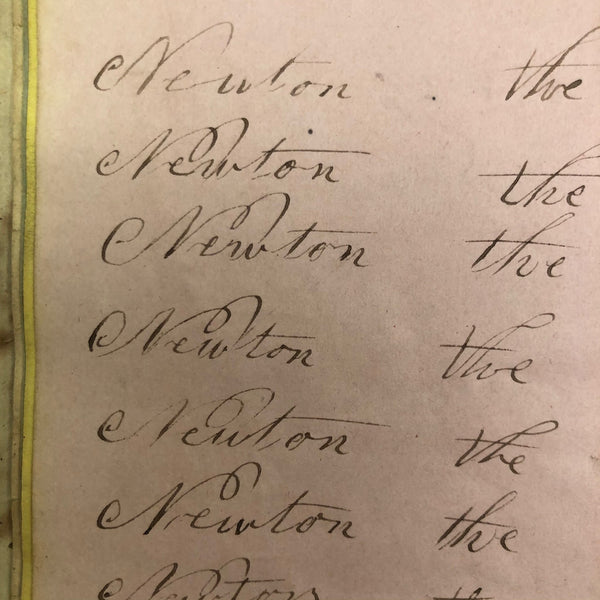 Newton the
Newton the
Newton the
Newton the
Newton the
Newton the
Newton